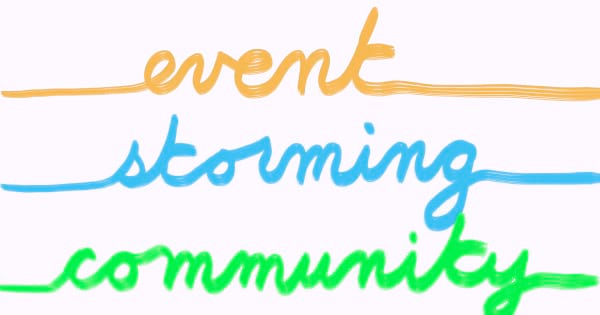 event
storming
community